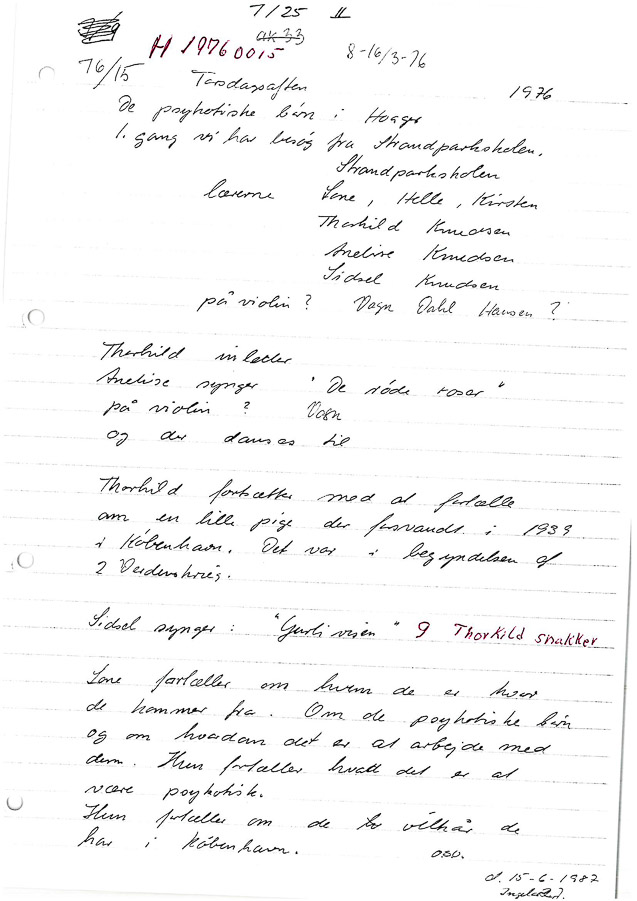 7/25 II
ak 33
H 19760015
8-16/3-76
76/15
Torsdagsaften 1976
De psykotiske børn i Hoager
1. gang vi har besøg fra Strandparkskolen.
Strandparkskolen
lærerne Lone, Helle, Kirsten
Thorkild Knudsen
Anelise Knudsen
Sidsel Knudsen
på violin? Vagn Dahl Hansen?
Thorkild inleder
Anelise synger "De röde roser"
på violin? Vagn
og der danses til
Thorkild fortsætter med at fortælle
om en lille pige der forsvandt i 1939
i København. Det var i begyndelsen af
2 Verdenskrig.
Sidsel synger: "Gurli visen" 9 Thorkild snakker
Lone fortæller om hvem de er hvor
de kommer fra. Om de psykotiske børn
og om hvordan det er at arbejde med
dem. Hun fortæller hvad det er at
være psykotisk.
Hun fortæller om de bo vilkår de
har i København. osv.
d. 15-6-1987